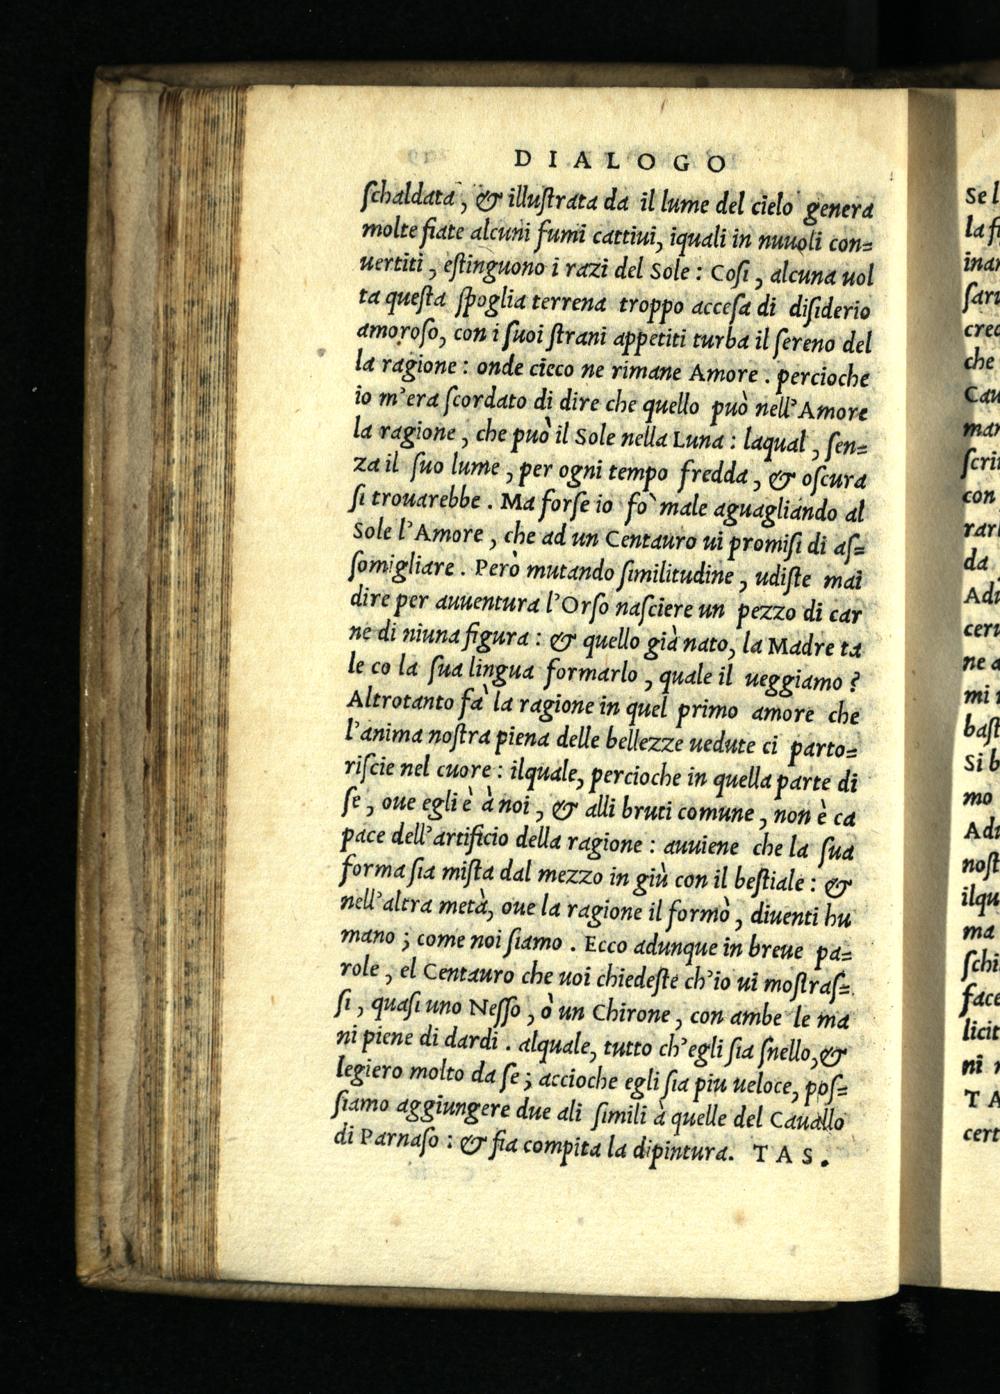 DIALOGO
ſchaldata, & illuſtrata da il lume del cielo genera
molte fiate alcuni fumi cattiui, iquali in nuuoli con=
uertiti, eſtinguono i razi del Sole: Coſi, alcuna uol
ta queſta ſpoglia terrena troppo acceſa di diſiderio
amoroſo, con i ſuoi ſtrani appetiti turba il ſereno del
la ragione: onde cieco ne rimane Amore. percioche
io m'era ſcordato di dire che quello può nell'Amore
la ragione, che può il Sole nella Luna: laqual, ſen=
za il ſuo lume, per ogni tempo fredda, & oſcura
ſi trouarebbe. Ma forſe io fò male aguagliando al
Sole l'Amore, che ad un Centauro ui promiſi di aſ=
ſomigliare. Però mutando ſimilitudine, udiſte mai
dire per auuentura l'Orſo naſciere un pezzo di car
ne di niuna figura: & quello già nato, la Madre ta
le co la ſua lingua formarlo, quale il ueggiamo?
Altrotanto fà la ragione in quel primo amore che
l'anima noſtra piena delle bellezze uedute ci parto=
riſcie nel cuore: ilquale, percioche in quella parte di
ſe, oue egli è à noi, & alli bruti comune, non è ca
pace dell'artificio della ragione: auuiene che la ſua
forma ſia miſta dal mezzo in giù con il beſtiale: &
nell'altra metà, oue la ragione il formò, diuenti hu
mano; come noi ſiamo. Ecco adunque in breue pa=
role, el Centauro che uoi chiedeſte ch'io ui moſtraſ=
ſi, quaſi uno Neſſo, ò un Chirone, con ambe le ma
ni piene di dardi. alquale, tutto ch'egli ſia ſnello, &
legiero molto da ſe; accioche egli ſia piu ueloce, poſ=
ſiamo aggiungere due ali ſimili à quelle del Cauallo
di Parnaſo: & fia compita la dipintura. TAS.
Se l
la fi
inan
ſaru
crea
che
Cau
man
ſcri
con
rarl
da
Adu
ceru
ne a
mi
baſt
Si b
mo
Adu
noſt
ilqu
ma
ſchi
face
licit
ni
TA
cert